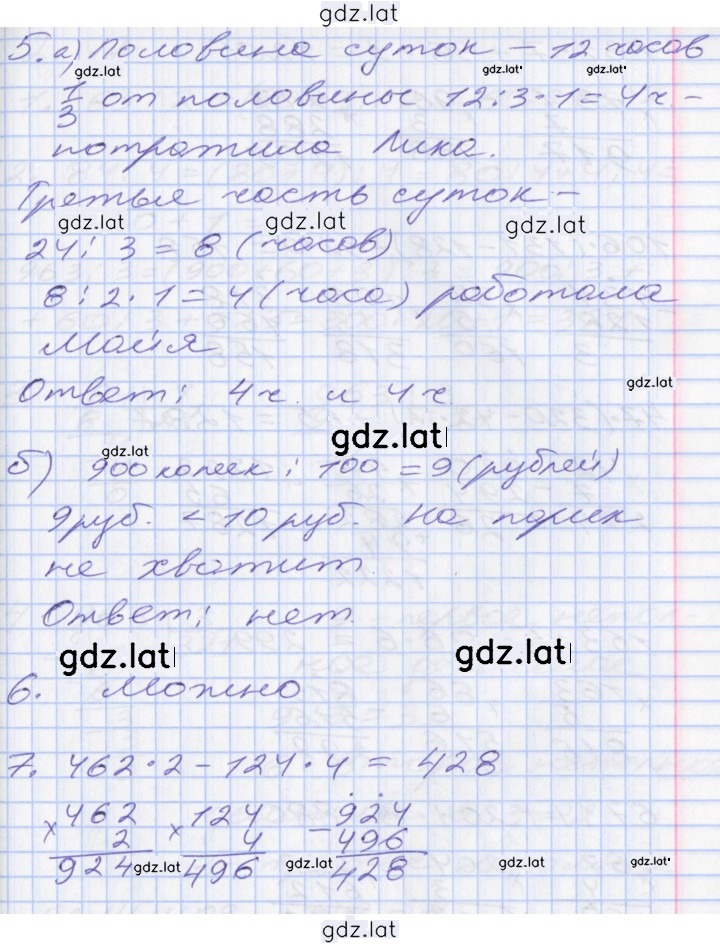 gdz.lat
5. а) Половина суток – 12 часов
gdz.lat gdz.lat gdz.lat
1/3 от половины 12:3·1=4ч.–
потратила Лика.
Третья часть суток –
gdz.lat gdz.lat gdz.lat
24 : 3 = 8 (часов)
8 : 2 · 1 = 4 (часа) работала
Майя
gdz.lat
Ответ: 4ч. и 4ч.
gdz.lat gdz.lat
б) 900 копеек : 100 = 9 (рублей)
9 руб. < 10 руб. На
не хватит.
Ответ: нет.
gdz.lat gdz.lat
6. Можно
7. 462·2 – 124·4 = 428
×462 ×124 –924
2 4 496
924 496 428
gdz.lat gdz.lat gdz.lat gdz.lat
gdz.lat